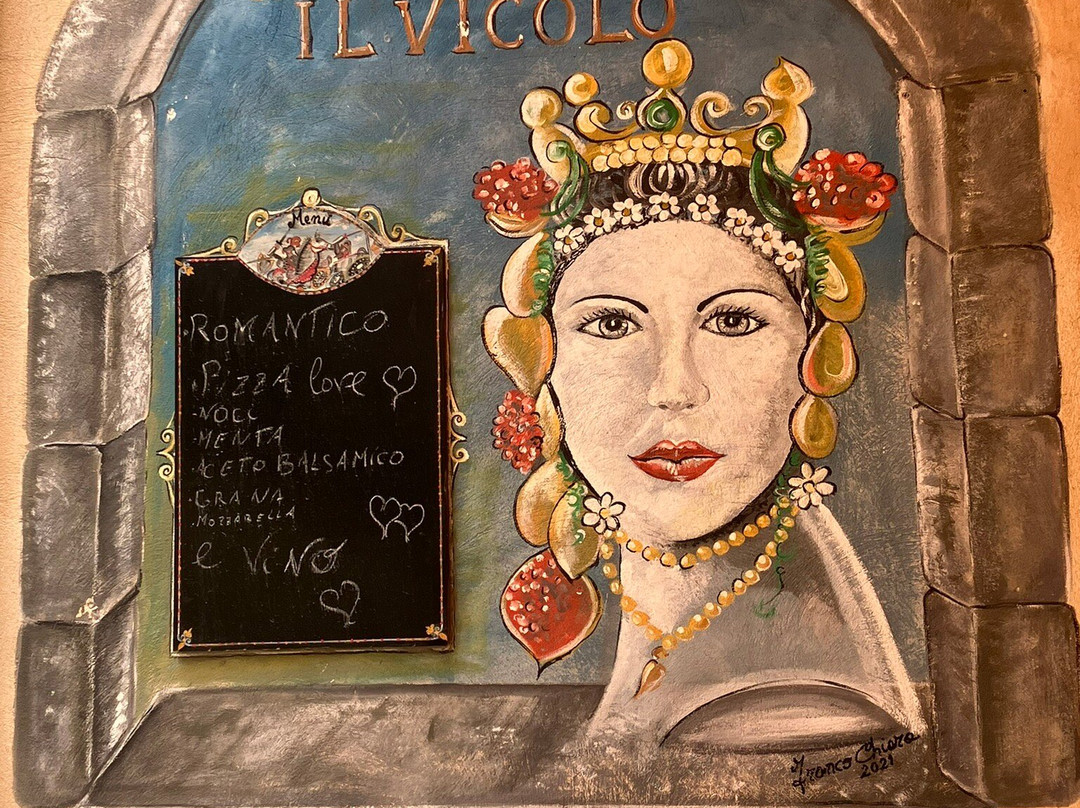 IL VICOLO
Menù
·ROMANTICO
·PizzA love
·NOCI
·MENTA
·ACETO BALSAMICO
·GRANA
·MOZZARELLA
e ViNO
Franco Chiara
2021